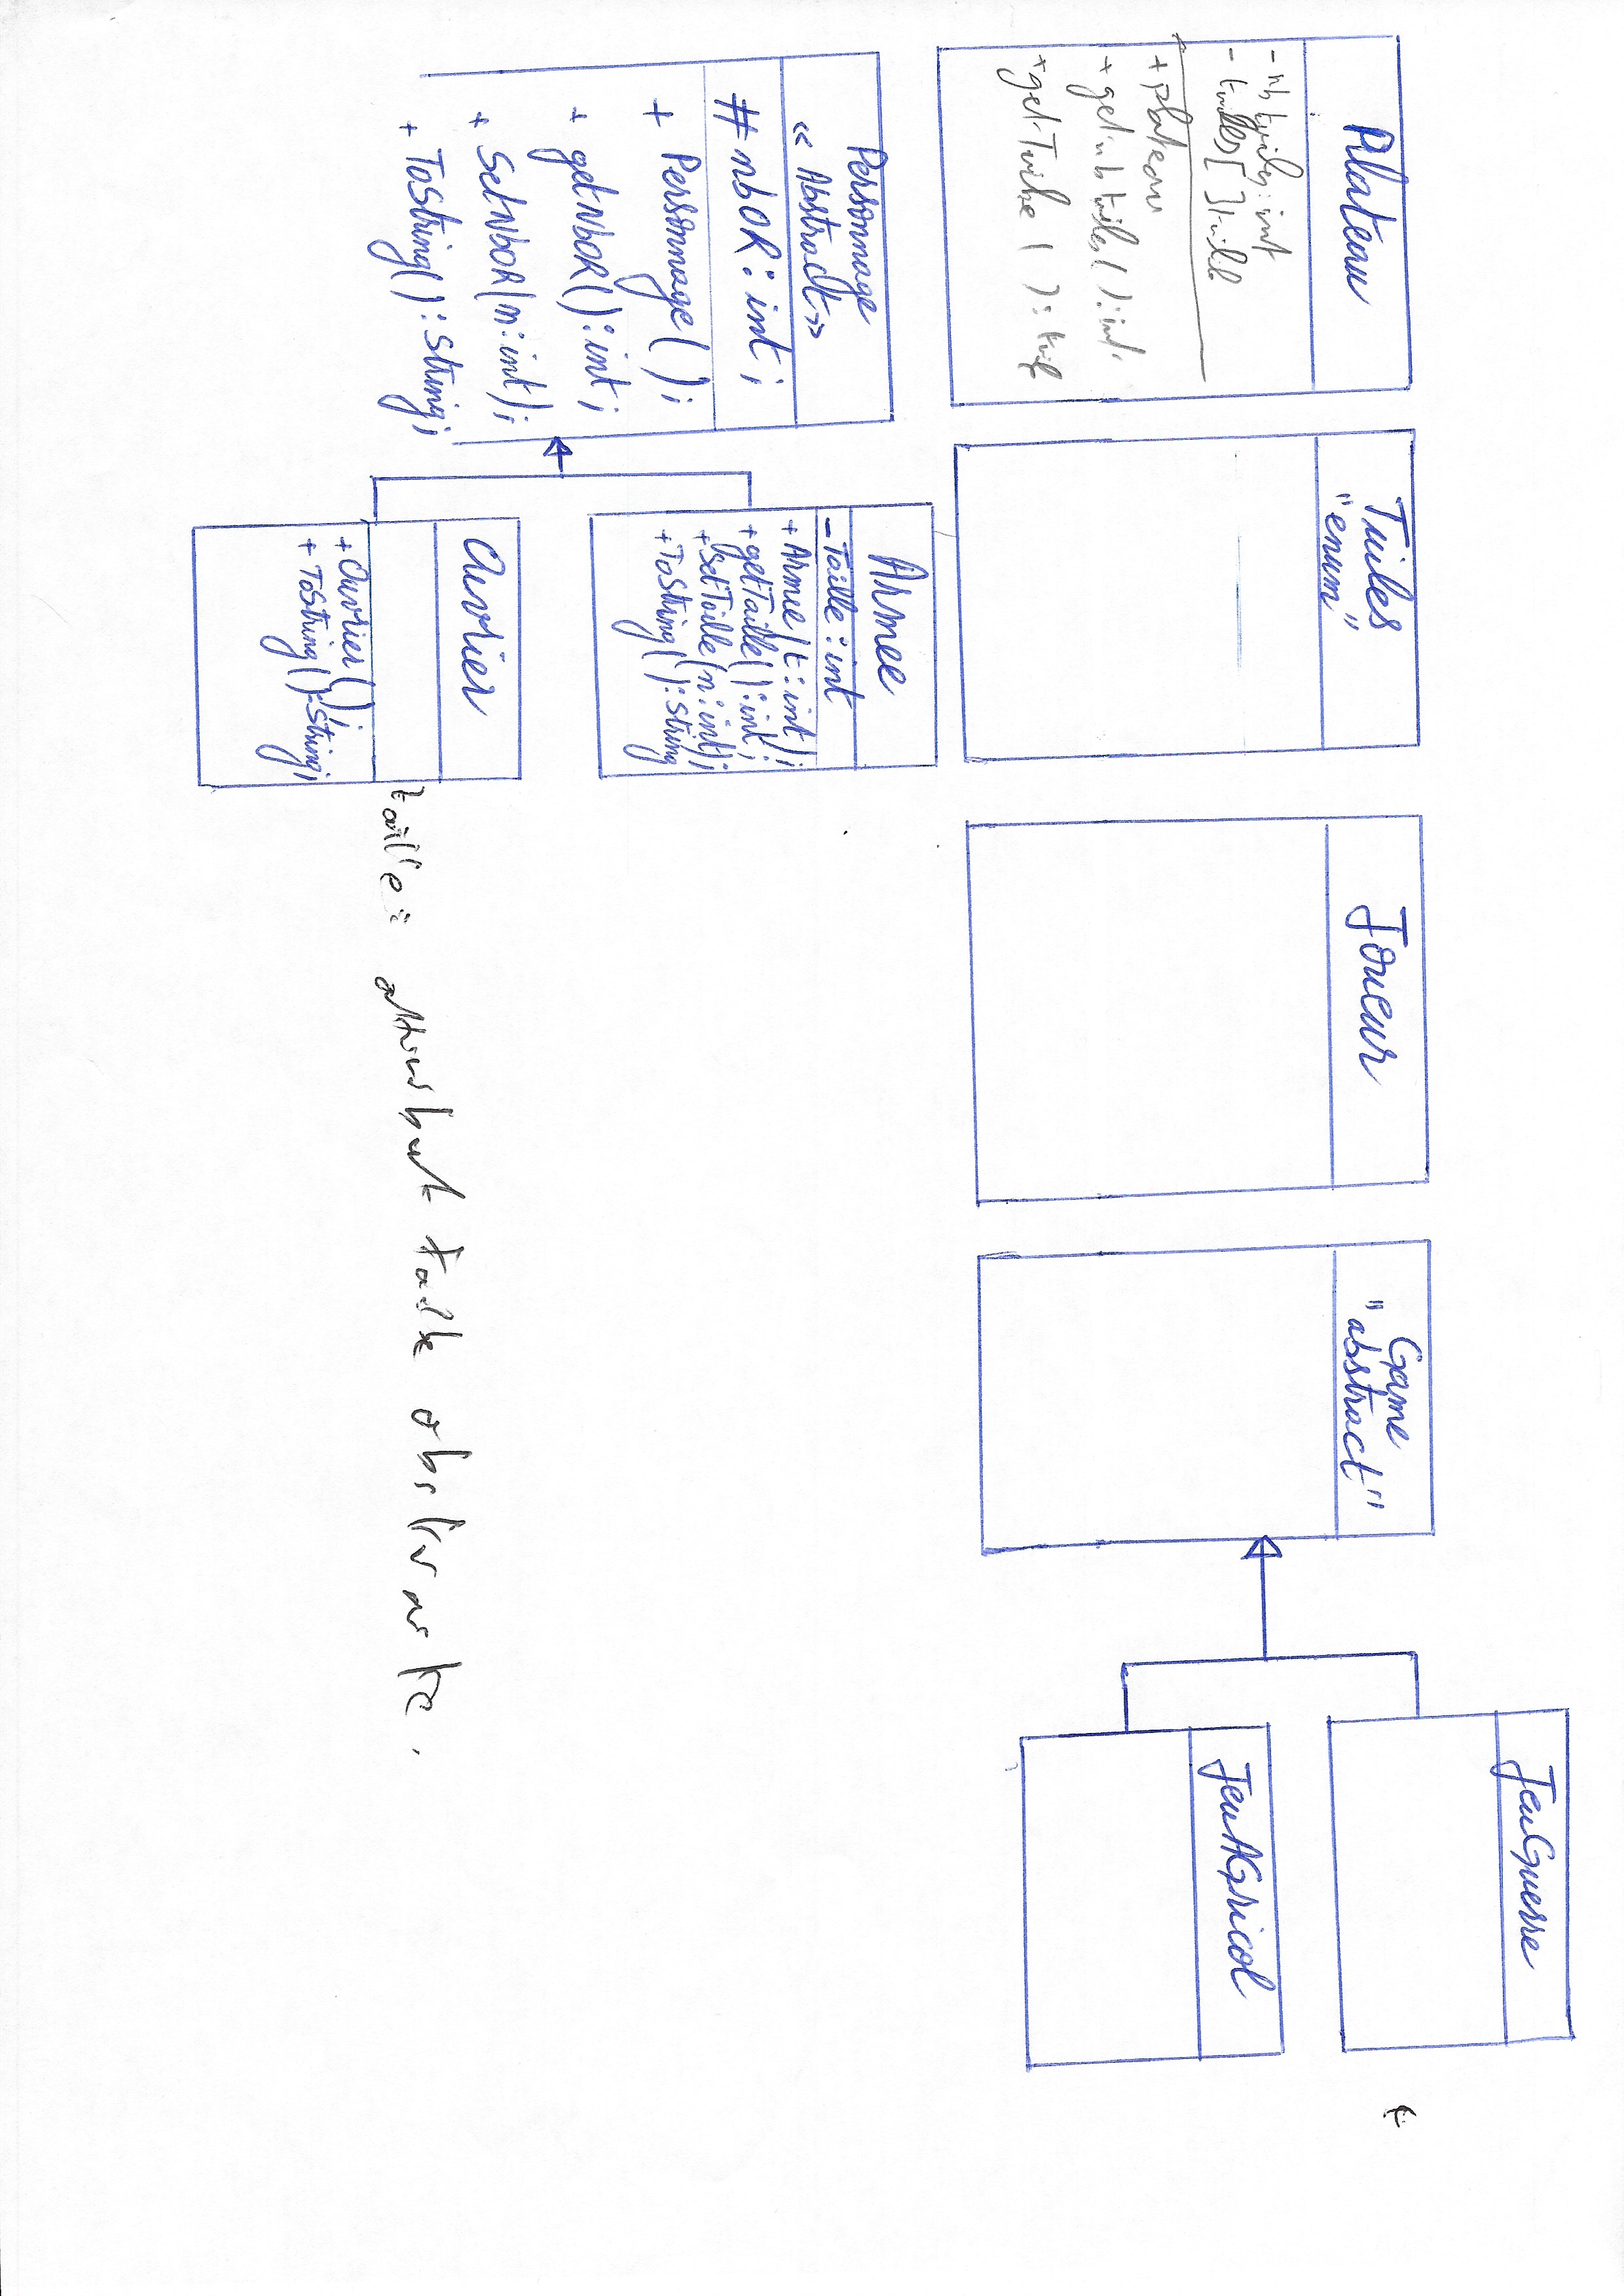 Plateau
- nb tuiles : int
- tuiles [ ] tuile
+ plateau
+ get nb tuiles ( ) : int
+ get Tuile ( ) :
Tuiles
"enum"
Joueur
Game
"abstract"
JeuGuerre
JeuAGricol
Personnage
« Abstract »
# nbOR : int ;
+ Personnage ( ) ;
+ getNbOR ( ) : int ;
+ SetNbOR (n : int) ;
+ ToString ( ) : String ;
Armee
- Taille : int
+ Armee (t : int) ;
+ getTaille ( ) : int ;
+ SetTaille (n : int) ;
+ ToString ( ) : String
Ouvrier
+ Ouvrier ( ) ;
+ ToString ( ) : String ;
taille : attribut